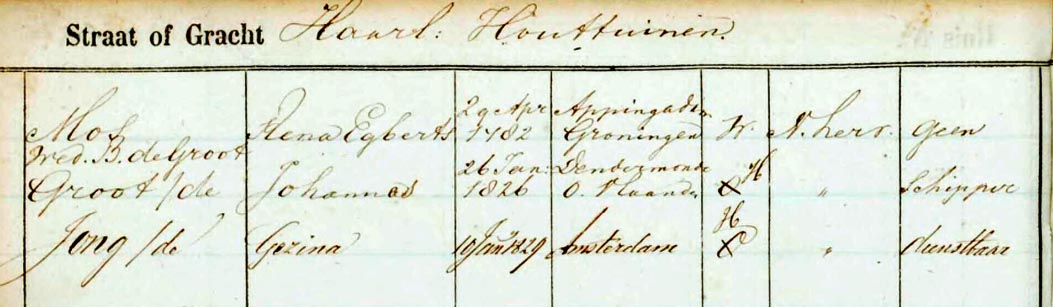 Straat of Gracht Haarl: Houttuinen.
29 Apr Appingadam
Mos Rena Egberts 1782 Groningen W. N. herv. geen
Wed. B. de Groot
26 Jan: Dendermonde H
Groot /de Johannes 1826 O. Vlaand. X " Schipper
H
Jong /de Gezina 10 Jan 1829 Amsterdam X " dienstbaar